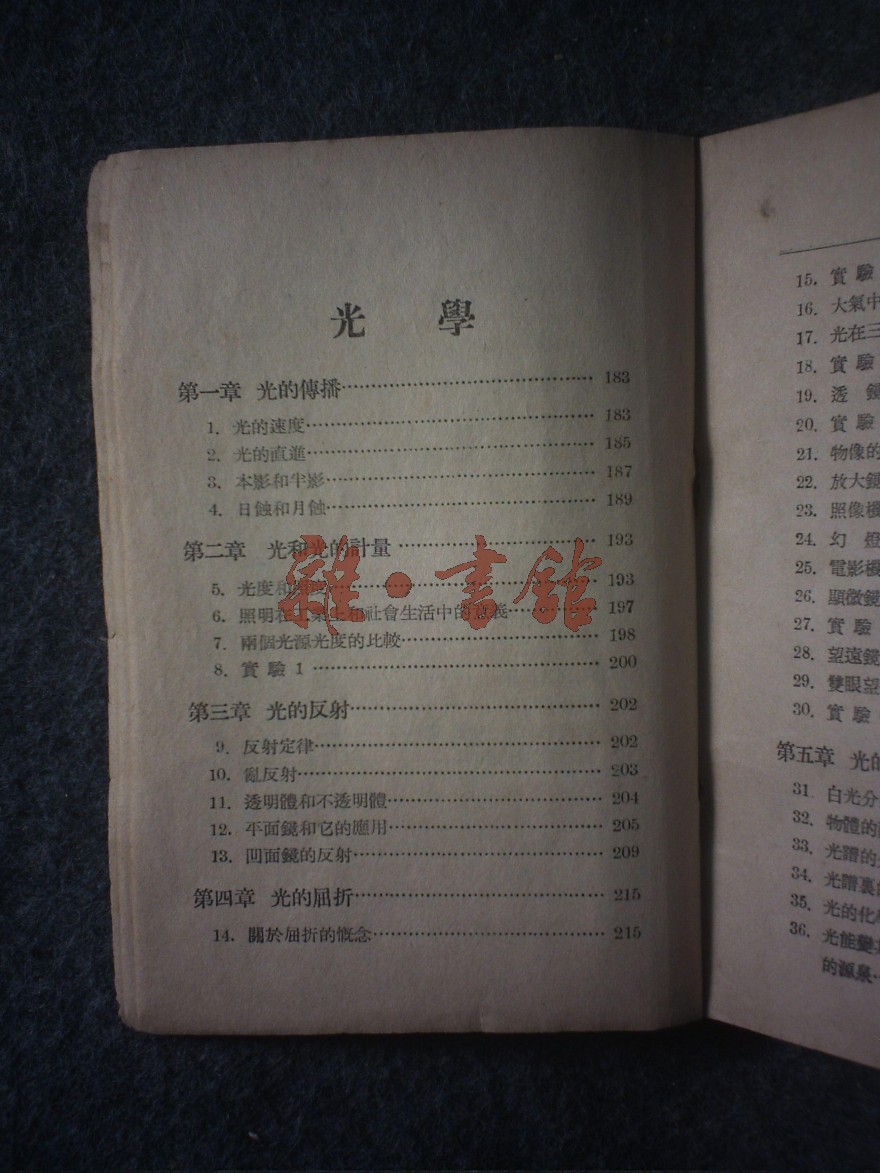 光 學
第一章 光的傳播 183
1. 光的速度 183
2. 光的直進 185
3. 本影和半影 187
4. 日蝕和月蝕 189
第二章 光和光的計量 193
5. 光度和照度 193
6. 照明在工業上和社會生活中的意義 197
7. 兩個光源光度的比較 198
8. 實驗 1 200
第三章 光的反射 202
9. 反射定律 202
10. 亂反射 203
11. 透明體和不透明體 204
12. 平面鏡和它的應用 205
13. 凹面鏡的反射 209
第四章 光的屈折 215
14. 關於屈折的慨念 215
雜·書館
15. 實驗
16. 大氣中
17. 光在三
18. 實驗
19. 透鏡
20. 實驗
21. 物像的
22. 放大鏡
23. 照像機
24. 幻燈
25. 電影機
26. 顯微鏡
27. 實驗
28. 望遠鏡
29. 雙眼望
30. 實驗
第五章 光的
31. 白光分
32. 物體的
33. 光譜的
34. 光譜裏的
35. 光的化學
36. 光能變
的源泉